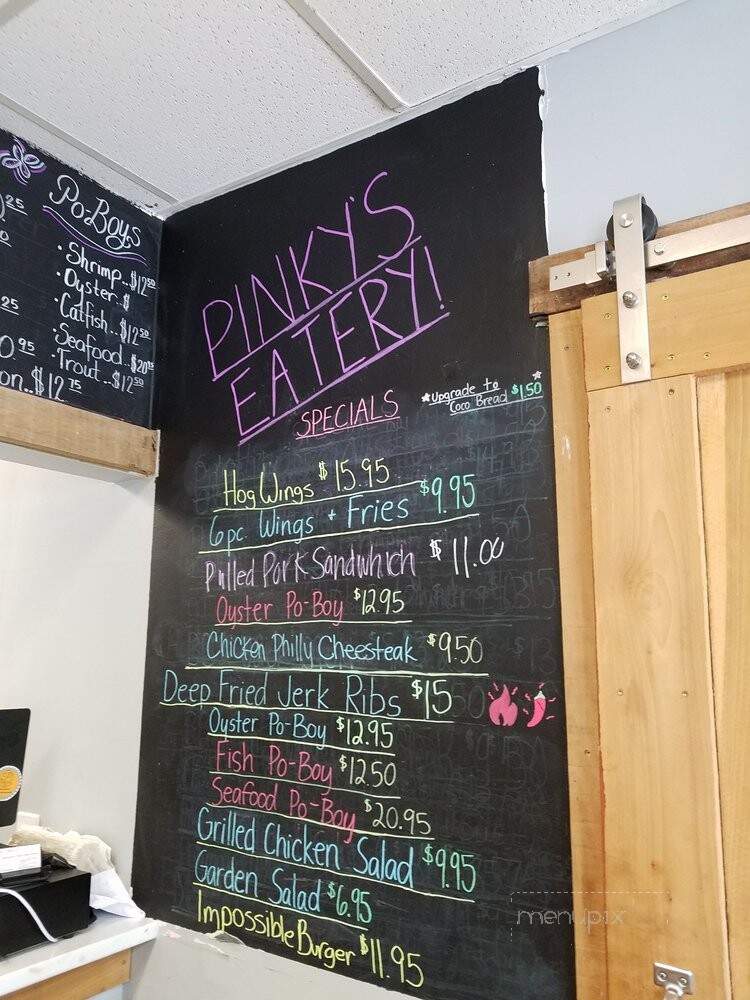 Po-Boys
25
· Shrimp..$12.50
· Oyster..$
· Catfish..$12.50
25
· Seafood..$20
0.95
· Trout..$12.50
on..$12.75
PINKY'S
EATERY!
SPECIALS
*Upgrade to
Coco Bread $1.50
Hog Wings $15.95
6pc. Wings + Fries $9.95
Pulled Pork Sandwhich $11.00
Oyster Po-Boy $12.95
Chicken Philly Cheesteak $9.50
Deep Fried Jerk Ribs $15
Oyster Po-Boy $12.95
Fish Po-Boy $12.50
Seafood Po-Boy $20.95
Grilled Chicken Salad $9.95
Garden Salad $6.95
Impossible Burger $11.95
menupix